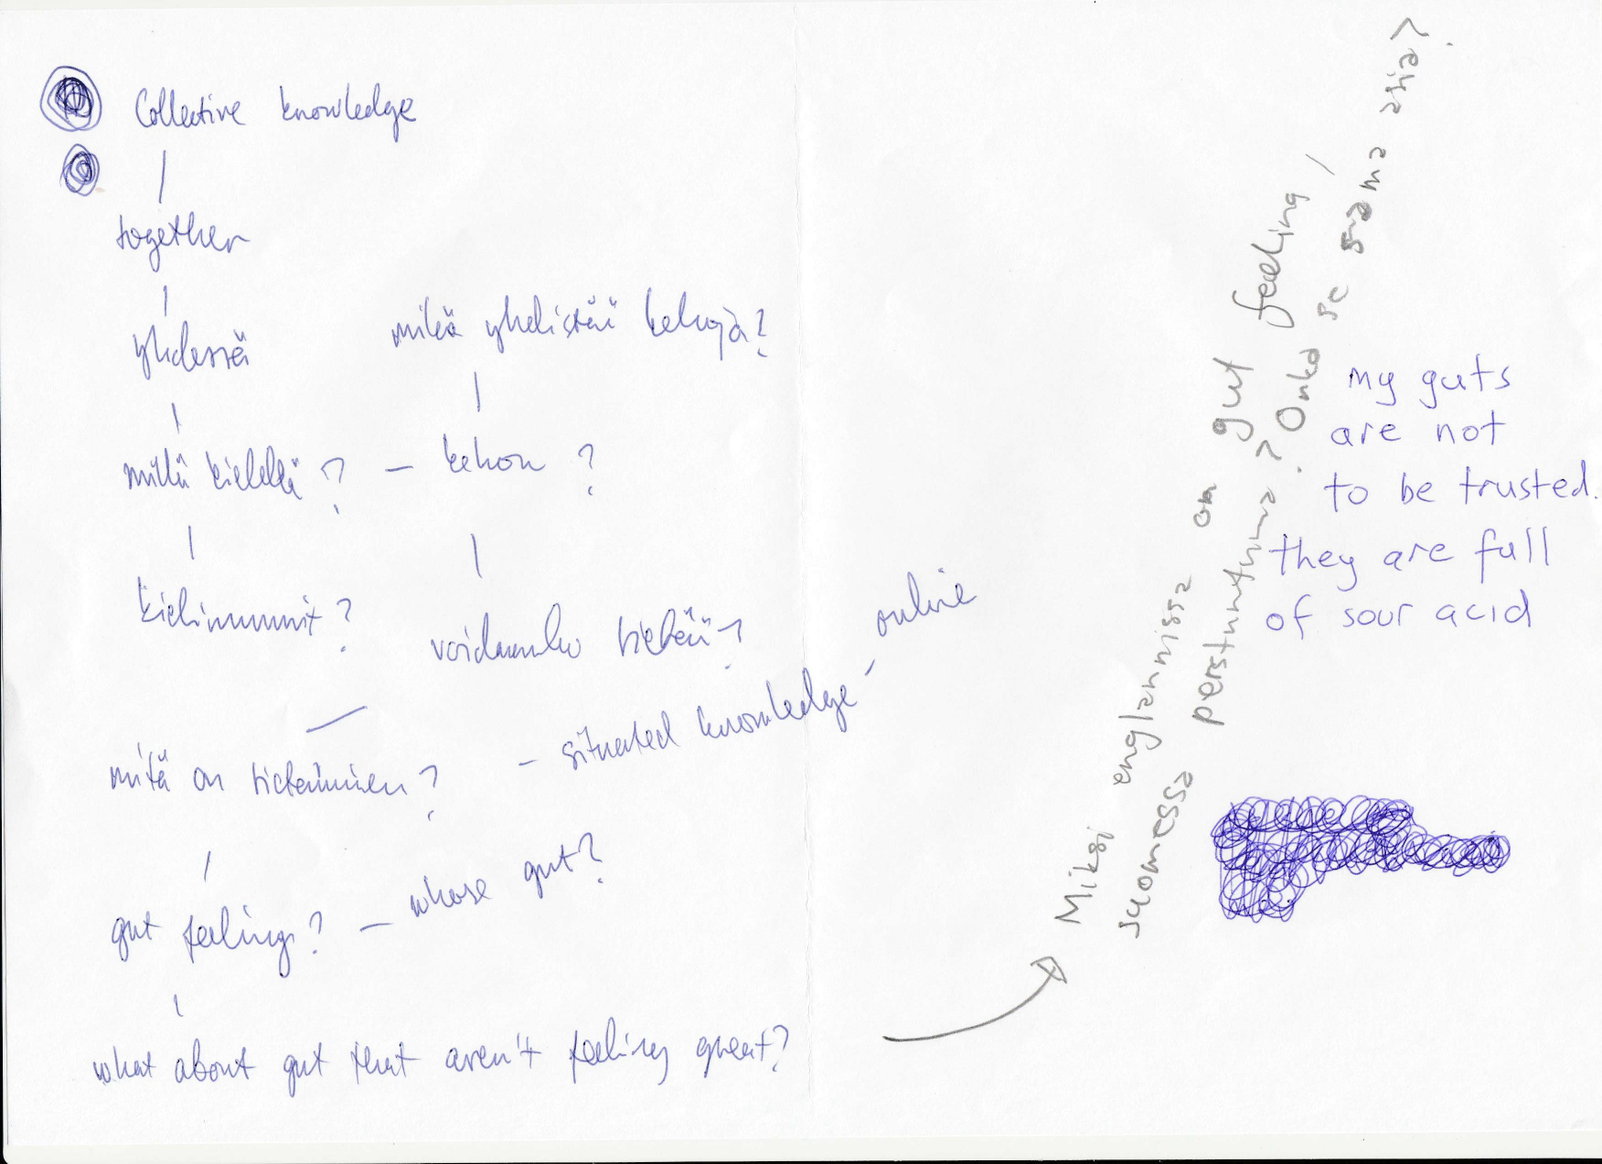 Collective knowledge
together
yhdessä
mikä yhdistää kehoja?
millä kielellä? – kehon?
kielimuurit?
voidaanko tietää?
mitä on tietäminen?
– situated knowledge – online
gut feelings? – whose gut?
what about gut that aren't feeling great?
Miksi englannissa on gut feeling /
suomessa perstuntuma? Onko se sama asia?
my guts
are not
to be trusted.
they are full
of sour acid